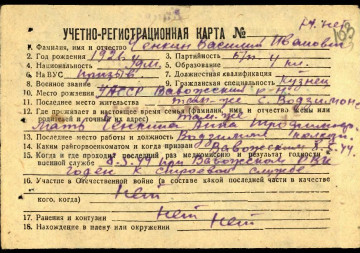 УЧЕТНО-РЕГИСТРАЦИОННАЯ КАРТА №
1. Фамилия, имя и отчество Ченкин Василий Иванович
2. Год рождения 1926 г. 3. Партийность б/п
4. Национальность 5. Образование 4 кл.
6. На ВУС призыв 7. Должностная квалификация
8. Военное звание 9. Гражданская специальность Кузнец
10. Место рождения УАССР Вавожский р-н
11. Последнее место жительства там-же с. Водзимонье
12. Где проживает в настоящее время семья (фамилия, имя, отчество жены или
родителей и точный их адрес) там-же
Мать Ченкина Анна
13. Последнее место работы и должность Водзимонье
14. Каким райгорвоенкоматом и когда призван Вавожским 8.5.44
15. Когда и где проходил последний раз медкомиссию и результат годности к
военной службе 8.5.44 при Вавожском РВК
годен к строевой службе
16. Участие в Отечественной войне (в составе какой последней части в качестве
кого, когда) Нет
17. Ранения и контузии Нет
18. Нахождение в плену или окружении Нет